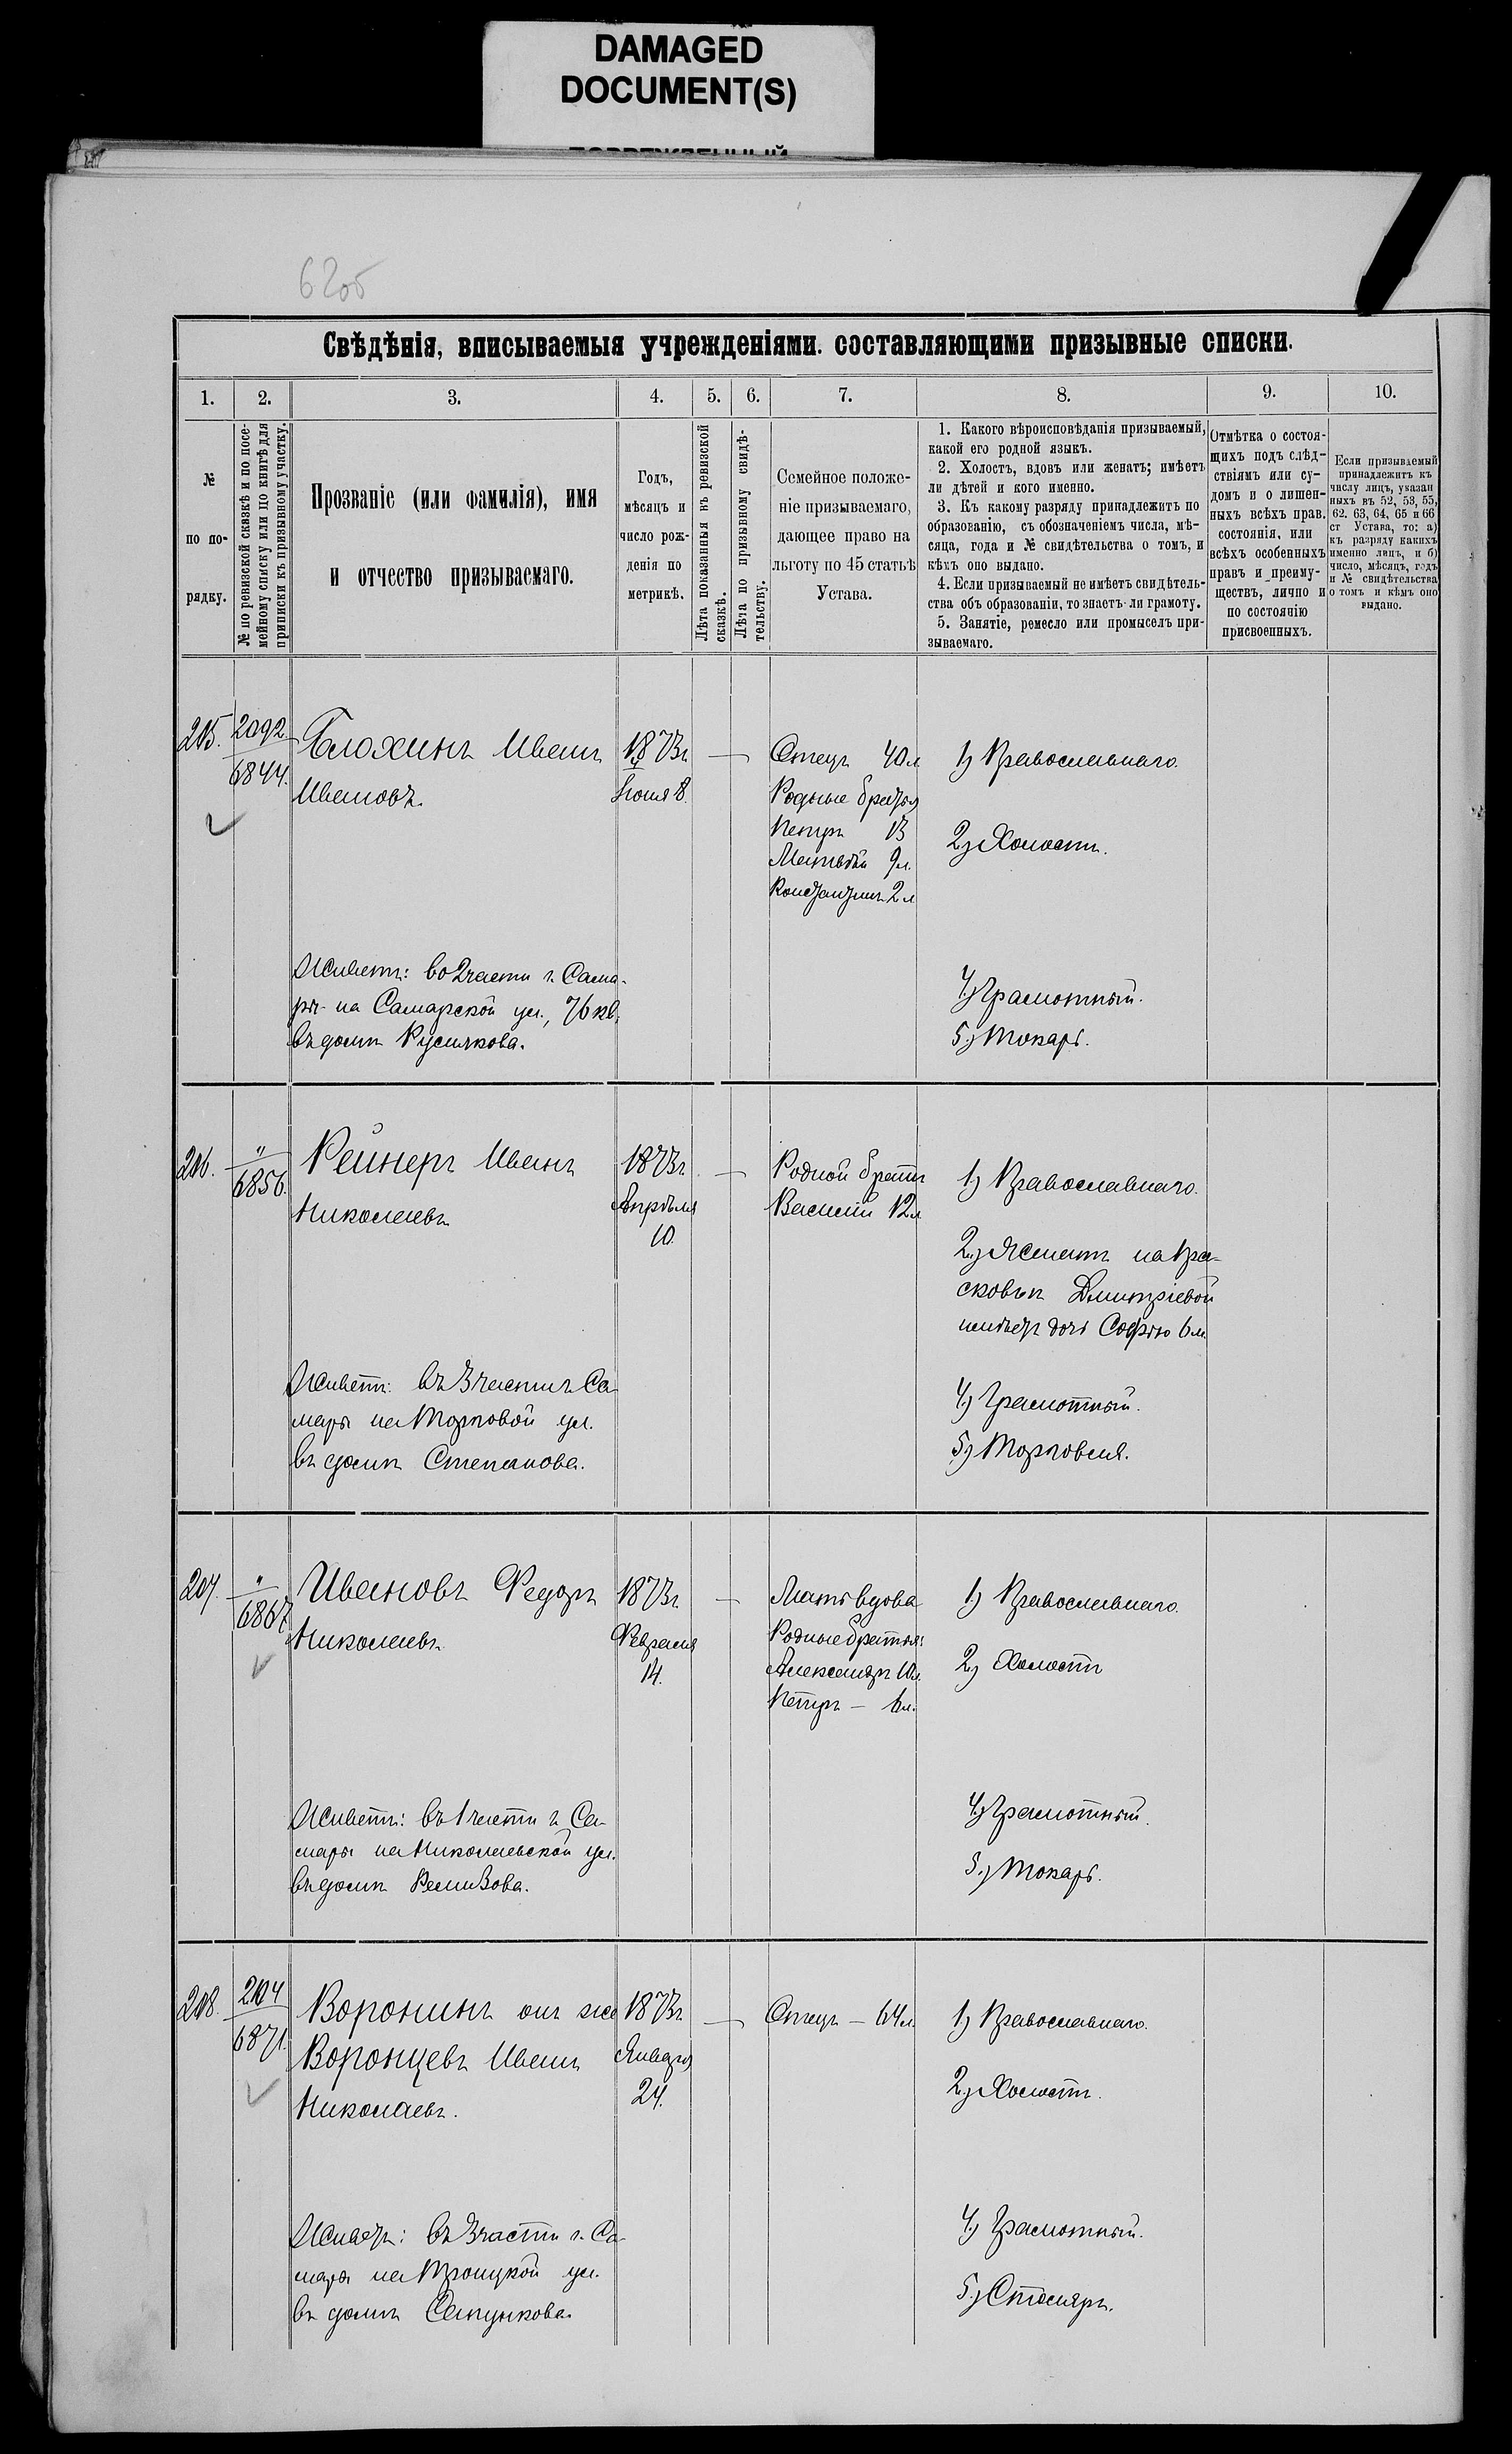 DAMAGED
DOCUMENT(S)
62об
Свѣдѣнія, вписываемыя учрежденіями. составляющими призывные списки.
1. 2. 3. 4. 5. 6. 7. 8. 9. 10.
№
по по-
рядку.
№ по ревизской сказкѣ и по посе-
мейному списку или по книгѣ для
приписки къ призывному участку.
Прозваніе (или фамилія), имя
и отчество призываемаго.
Годъ,
мѣсяцъ и
число рож-
денія по
метрикѣ.
Лѣта показанныя въ ревизской
сказкѣ.
Лѣта по призывному свидѣ-
тельству.
Семейное положе-
ніе призываемаго,
дающее право на
льготу по 45 статьѣ
Устава.
1. Какого вѣроисповѣданія призываемый,
какой его родной языкъ.
2. Холостъ, вдовъ или женатъ; имѣетъ
ли дѣтей и кого именно.
3. Къ какому разряду принадлежитъ по
образованію, съ обозначеніемъ числа, мѣ-
сяца, года и № свидѣтельства о томъ, и
кѣмъ оно выдано.
4. Если призываемый не имѣетъ свидѣтель-
ства объ образованіи, то знаетъ-ли грамоту.
5. Занятіе, ремесло или промыселъ при-
зываемаго.
Отмѣтка о состоя-
щихъ подъ слѣд-
ствіямъ или су-
домъ и о лишен-
ныхъ всѣхъ прав.
состоянія, или
всѣхъ особенныхъ
правъ и преиму-
ществъ, лично и
по состоянію
присвоенныхъ.
Если призываемый
принадлежитъ къ
числу лицъ, указан
ныхъ въ 52, 53, 55,
62. 63, 64, 65 и 66
ст Устава, то: а)
къ разряду какихъ
именно лицъ, и б)
число, мѣсяцъ, годъ
и № свидѣтельства
о томъ и кѣмъ оно
выдано.
205.
2092
6844.
Блохинъ Иванъ
Ивановъ.
1873г.
Іюня 8.
—
Отецъ 40л
Родные братья
Петръ 13
Матвѣй 9л.
Константинъ 2л
1) Православнаго.
2) Холостъ.
4) Грамотный.
5) Токарь.
Живетъ: во 2 части г. Сама-
ры на Самарской ул., 76 кв.
въ домѣ Русинкова.
206.
"
6856.
Рейнеръ Иванъ
Николаевъ
1873г.
Апрѣля
10.
—
Родной братъ
Василій 12л
1) Православнаго.
2) Женатъ на Пра-
сковьѣ Дмитріевой
имѣетъ дочь Софью 6 м.
4) Грамотный.
5) Торговля.
Живетъ: въ 3 части г. Са-
мары на Торговой ул.
въ домѣ Степанова.
207.
"
6867
Ивановъ Федоръ
Николаевъ.
1873г.
Февраля
14.
—
Мать вдова
Родные братья:
Александръ 10л.
Петръ — 6л.
1) Православнаго.
2) Холостъ
4) Грамотный.
5) Токарь.
Живетъ: въ 1 части г. Са-
мары на Николаевской ул.
въ домѣ Ремизова.
208.
2104
6871.
Воронинъ онъ же
Воронцевъ Иванъ
Николаевъ.
1873г.
Января
24.
—
Отецъ — 64л.
1) Православнаго.
2) Холостъ.
4) Грамотный.
5) Столяръ.
Живетъ: въ 3 части г. Са-
мары на Троицкой ул.
въ домѣ Сапункова.